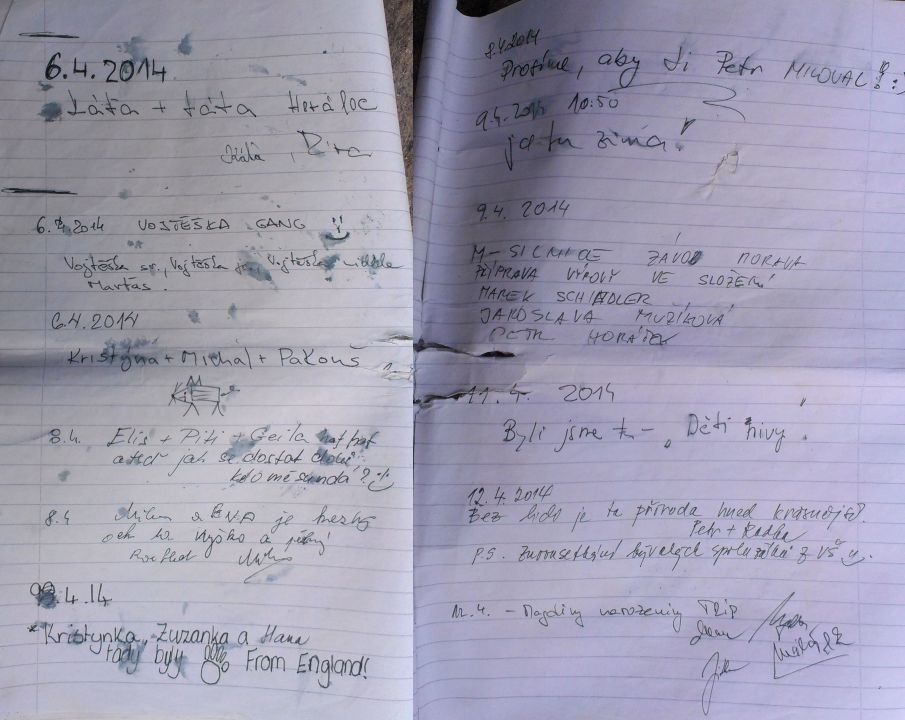 6.4.2014
Láťa + táta Herálec
6.4.2014 VOJTĚŠKA GANG
Vojtěška sr., Vojtěška jr., Vojtěška
Martas.
6.4.2014
Kristýna + Michal + Pakouš
8.4. Elis + Piti + Geila haf haf
a teď jak se dostat dolů,
kdo mě sundá?
8.4 je hezký
Rozhled
9.4.14
* Kristýnka, Zuzanka a Hana
tady byly From England!
8.4.2014
Prosíme, aby Ji Petr MILOVAL!! :)
9.4.2014 10:50
je tu zima!
9.4. 2014
M-SILNICE ZÁVOD MORAVA
PŘÍPRAVA VÝPOVY VE SLOŽENÍ
MAREK SCHINDLER
JAROSLAVA MUŽÍKOVÁ
PETR HORÁČEK
11.4. 2014
Byli jsme tu - „Děti nivy."
12.4.2014
Bez lidí je ta příroda hned krásnější.
Petr + Radka
P.S. bývalých spolužáků z VŠ
12.4. - Magdiny narozeniny TRIP